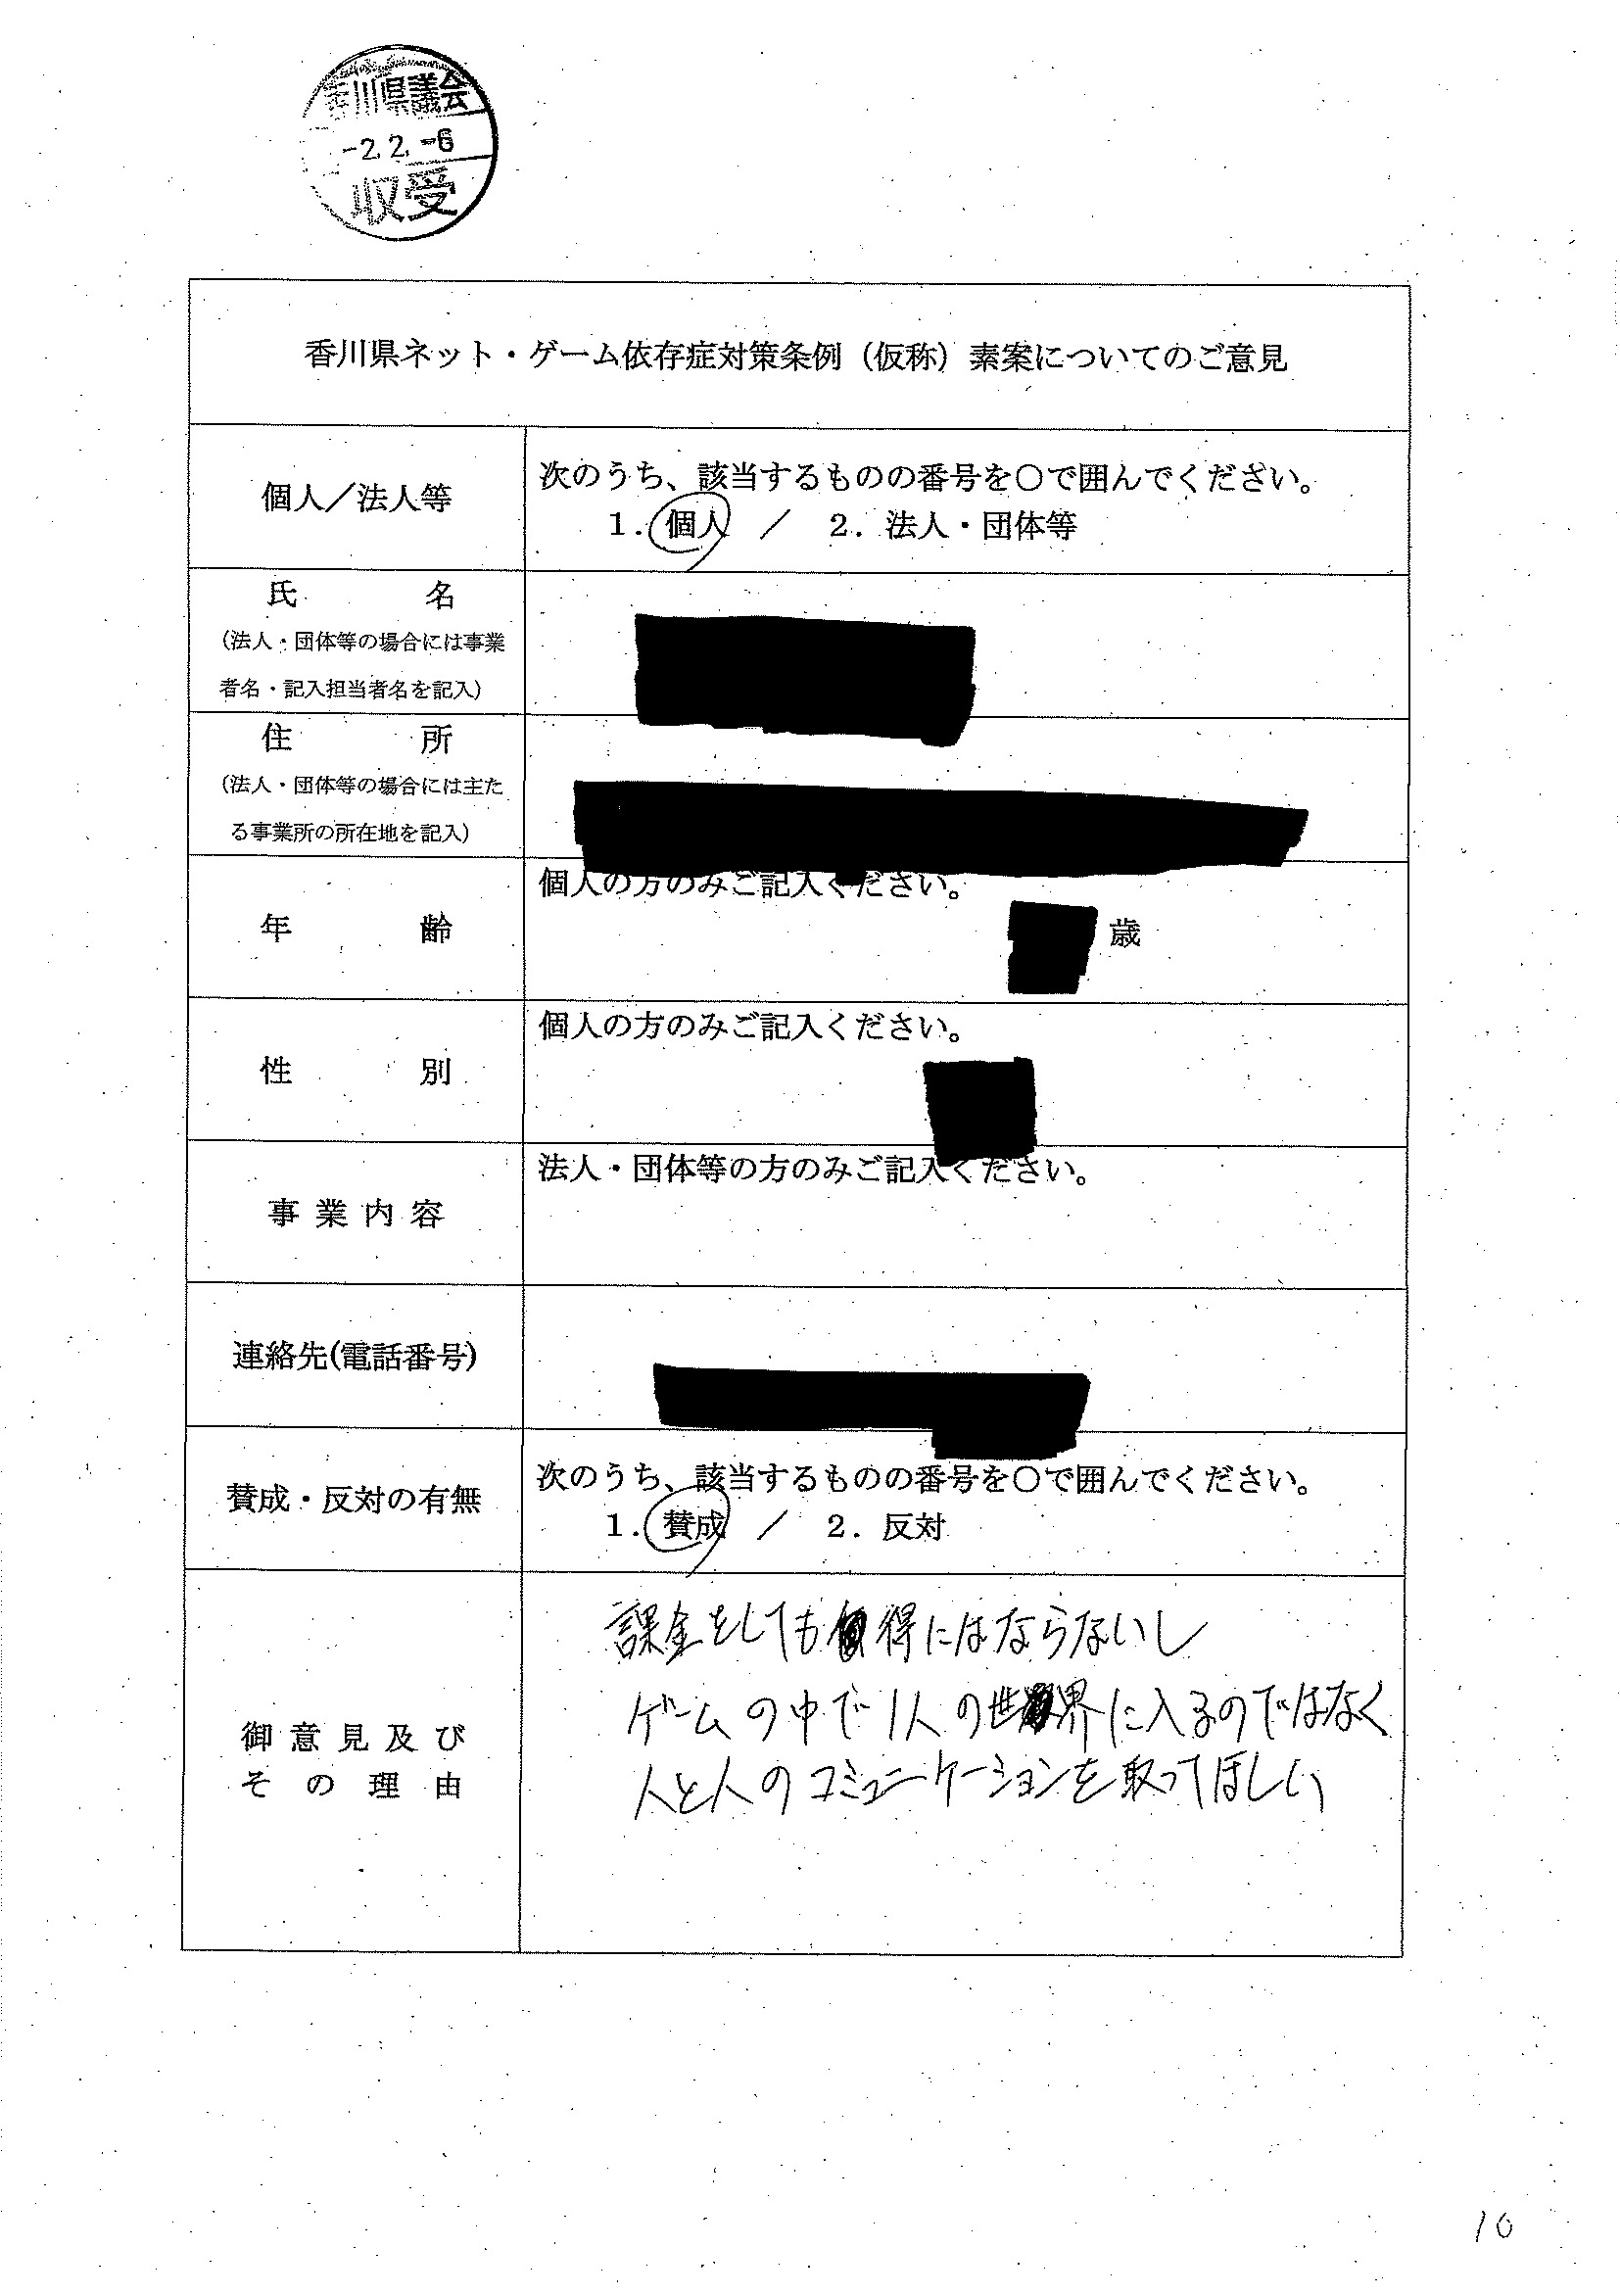 香川県議会
-2.2.-6
収受
香川県ネット・ゲーム依存症対策条例（仮称）素案についてのご意見
個人／法人等
次のうち、該当するものの番号を〇で囲んでください。
1．個人 ／ 2．法人・団体等
氏名
（法人・団体等の場合には事業
者名・記入担当者名を記入）
住所
（法人・団体等の場合には主た
る事業所の所在地を記入）
年齢
個人の方のみご記入ください。
歳
性別
個人の方のみご記入ください。
事業内容
法人・団体等の方のみご記入ください。
連絡先(電話番号)
賛成・反対の有無
次のうち、該当するものの番号を〇で囲んでください。
1．賛成 ／ 2．反対
御意見及び
その理由
課金をしても得にはならないし
ゲームの中で1人の世界に入るのではなく
人と人のコミュニーケーションを取ってほしい
10